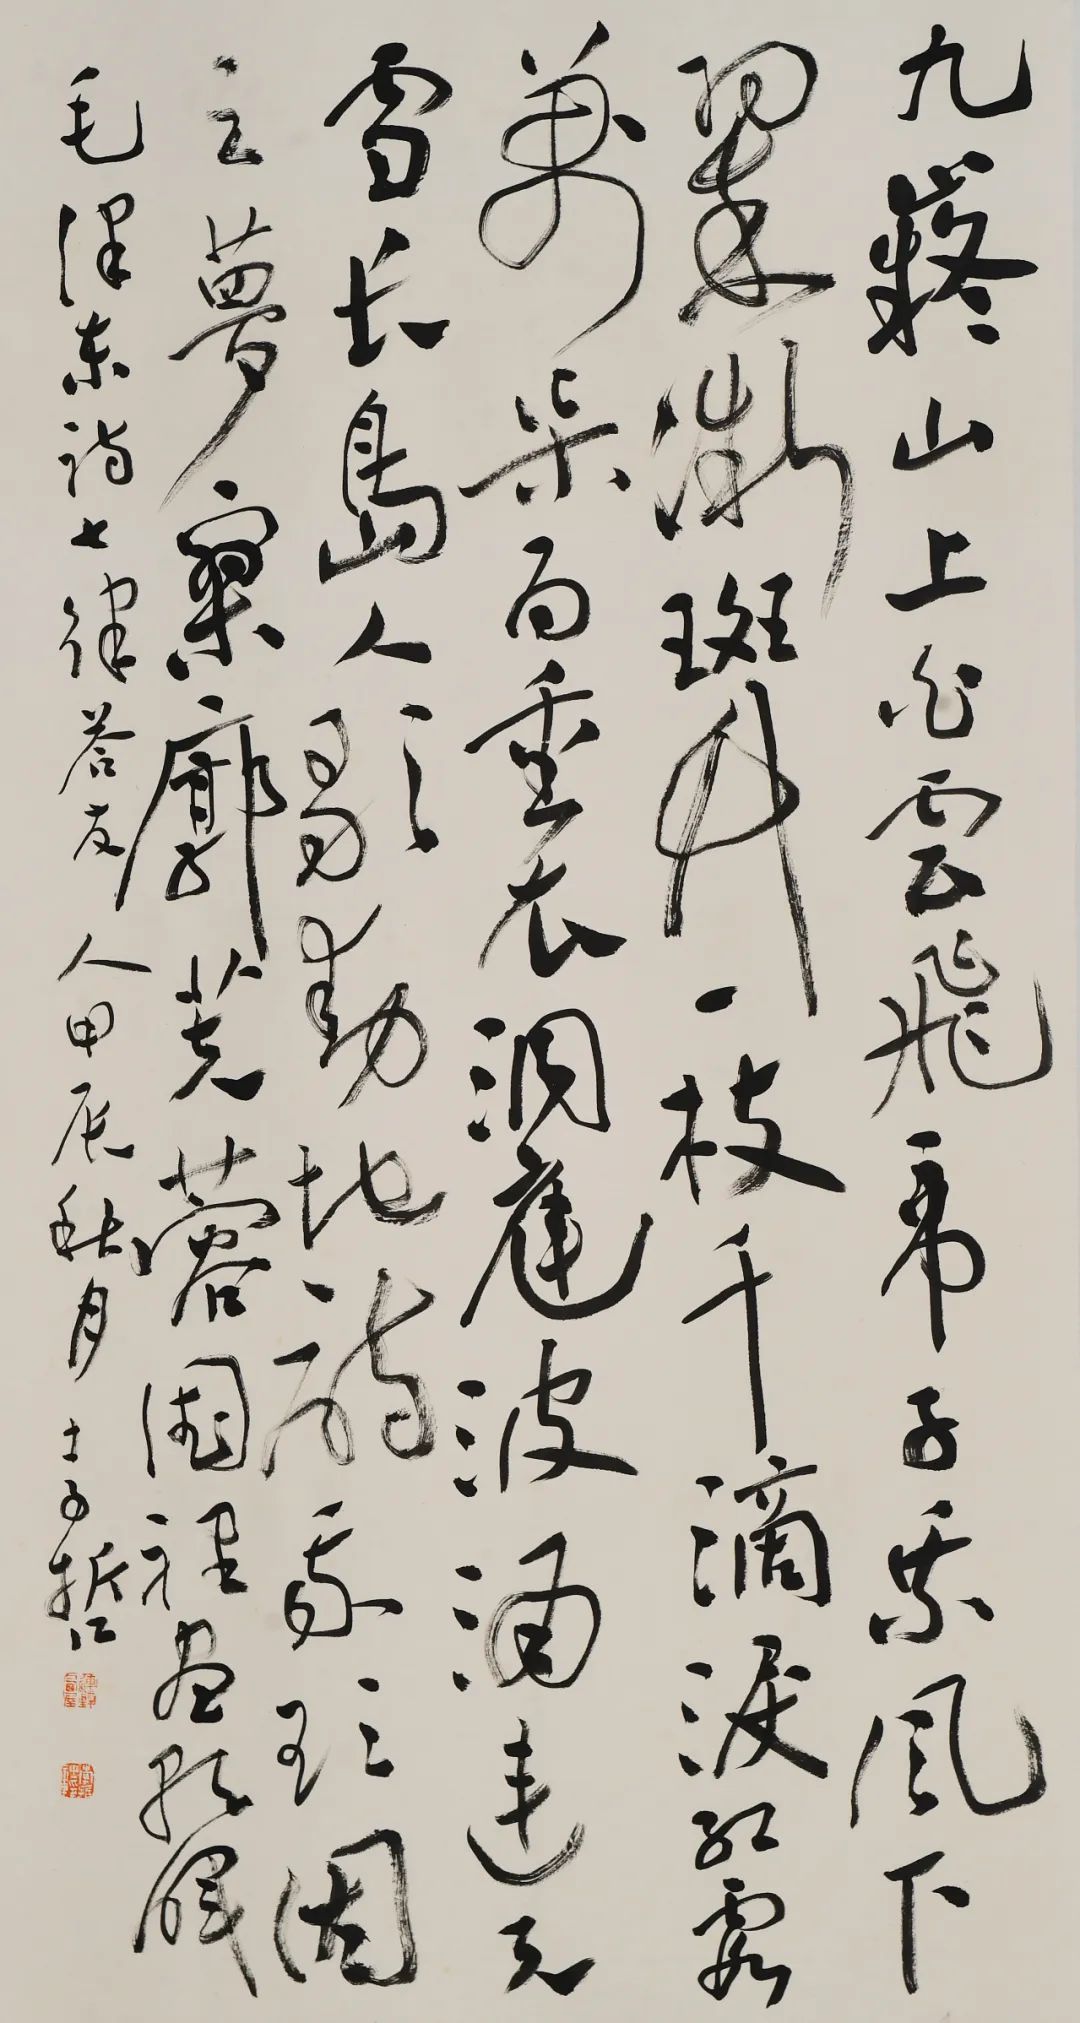 九嶷山上白雲飛帝子乘風下
翠微斑竹一枝千滴淚紅霞
萬朵百重衣洞庭波涌連天
雪長島人歌動地詩我欲因
之夢寥廓芙蓉國裡盡朝暉
毛澤東詩七律答友人甲辰秋月 哲